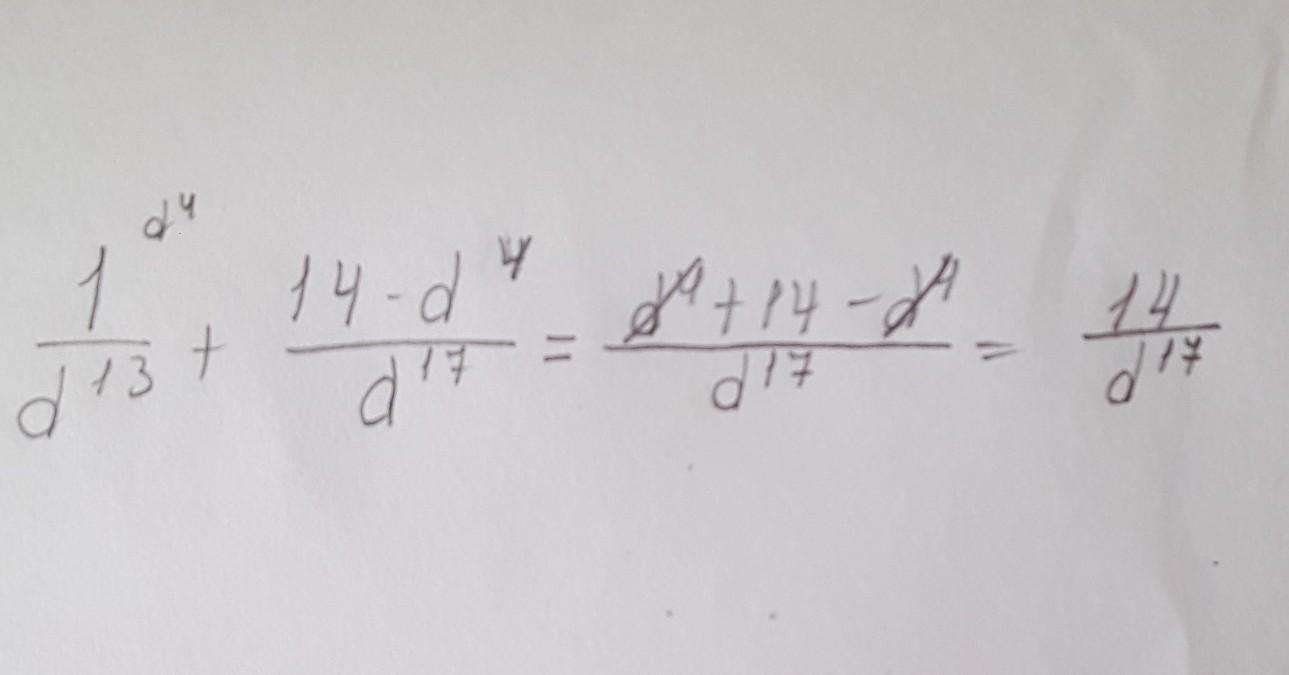 1/d¹³ d⁴ + (14-d⁴)/d¹⁷ = (d⁴+14-d⁴)/d¹⁷ = 14/d¹⁷